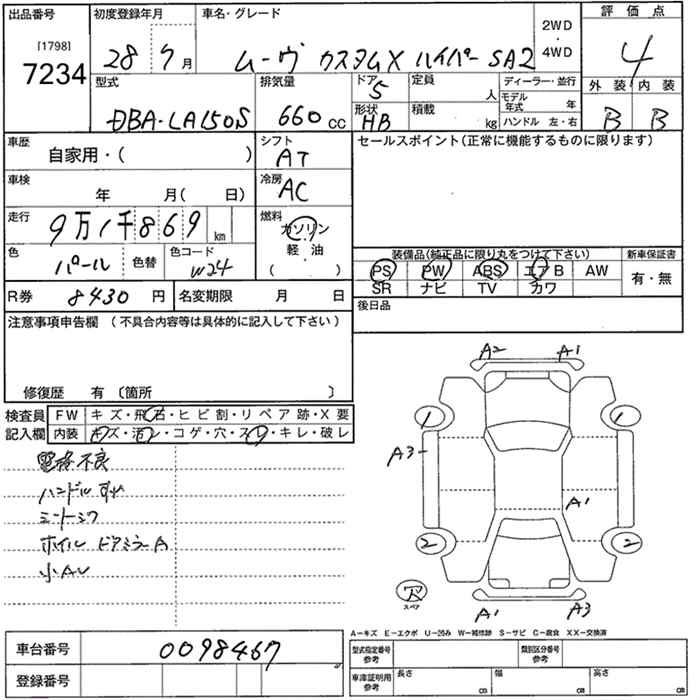 出品番号
[1798]
7234
初度登録年月
28 7月
車名・グレード
ムーヴ カスタムX ハイパーSA2
2WD
・
4WD
評価点
4
外装 内装
B B
型式
DBA-LA150S
排気量
660cc
ドア
5
形状
HB
定員
人
積載
kg
ディーラー・並行
モデル年式 年
ハンドル 左・右
車歴
自家用・( )
シフト
AT
車検
年 月( 日)
冷房
AC
走行
9万1千869km
燃料
ガソリン
軽・油
( )
色
パール
色替
色コード
W24
R券 8430円
名変期限 月 日
セールスポイント(正常に機能するものに限ります)
装備品(純正品に限り丸をつけて下さい)
PS PW ABS エアB AW
SR ナビ TV カワ
新車保証書
有・無
後日品
注意事項申告欄 (不具合内容等は具体的に記入して下さい)
修復歴 有 〔箇所 〕
検査員記入欄
FW キズ・飛石・ヒビ割・リペア跡・X要
内装 キズ・汚レ・コゲ・穴・スレ・キレ・破レ
電格不良
ハンドルすれ
ミートシワ
ホイル ドアミラーA
小AU
A2 A1
1 1
A3
A1
2 2
スペア
A1 A3
A−キズ E−エクボ U−凹み W−補修跡 S−サビ C−腐食 XX−交換済
車台番号 0098467
登録番号
型式指定番号
参考
類別区分番号
参考
車庫証明用
参考
長さ cm
幅 cm
高さ cm